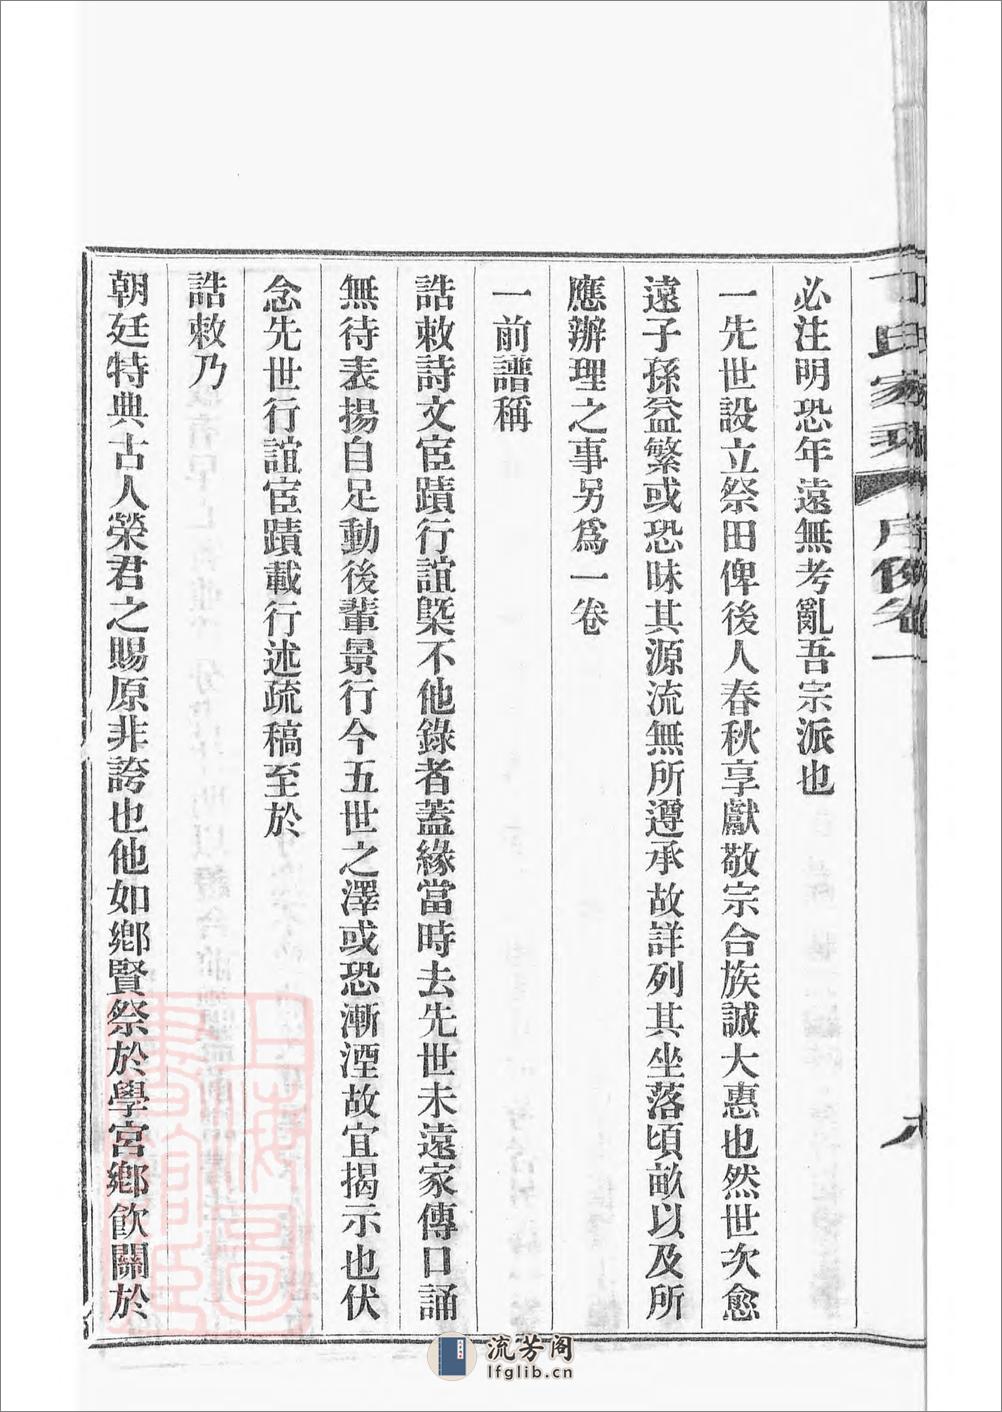 必注明恐年遠無考亂吾宗派也
一先世設立祭田俾後人春秋享獻敬宗合族誠大惠也然世次愈
遠子孫益繁或恐昧其源流無所遵承故詳列其坐落頃畝以及所
應辦理之事另爲一卷
一前譜稱
誥敕詩文宦蹟行誼槩不他錄者蓋緣當時去先世未遠家傳口誦
無待表揚自足動後輩景行今五世之澤或恐漸湮故宜揭示也伏
念先世行誼宦蹟載行述疏稿至於
誥敕乃
朝廷特典古人榮君之賜原非誇也他如鄉賢祭於學宮鄉飮關於
流芳阁
lfglib.cn